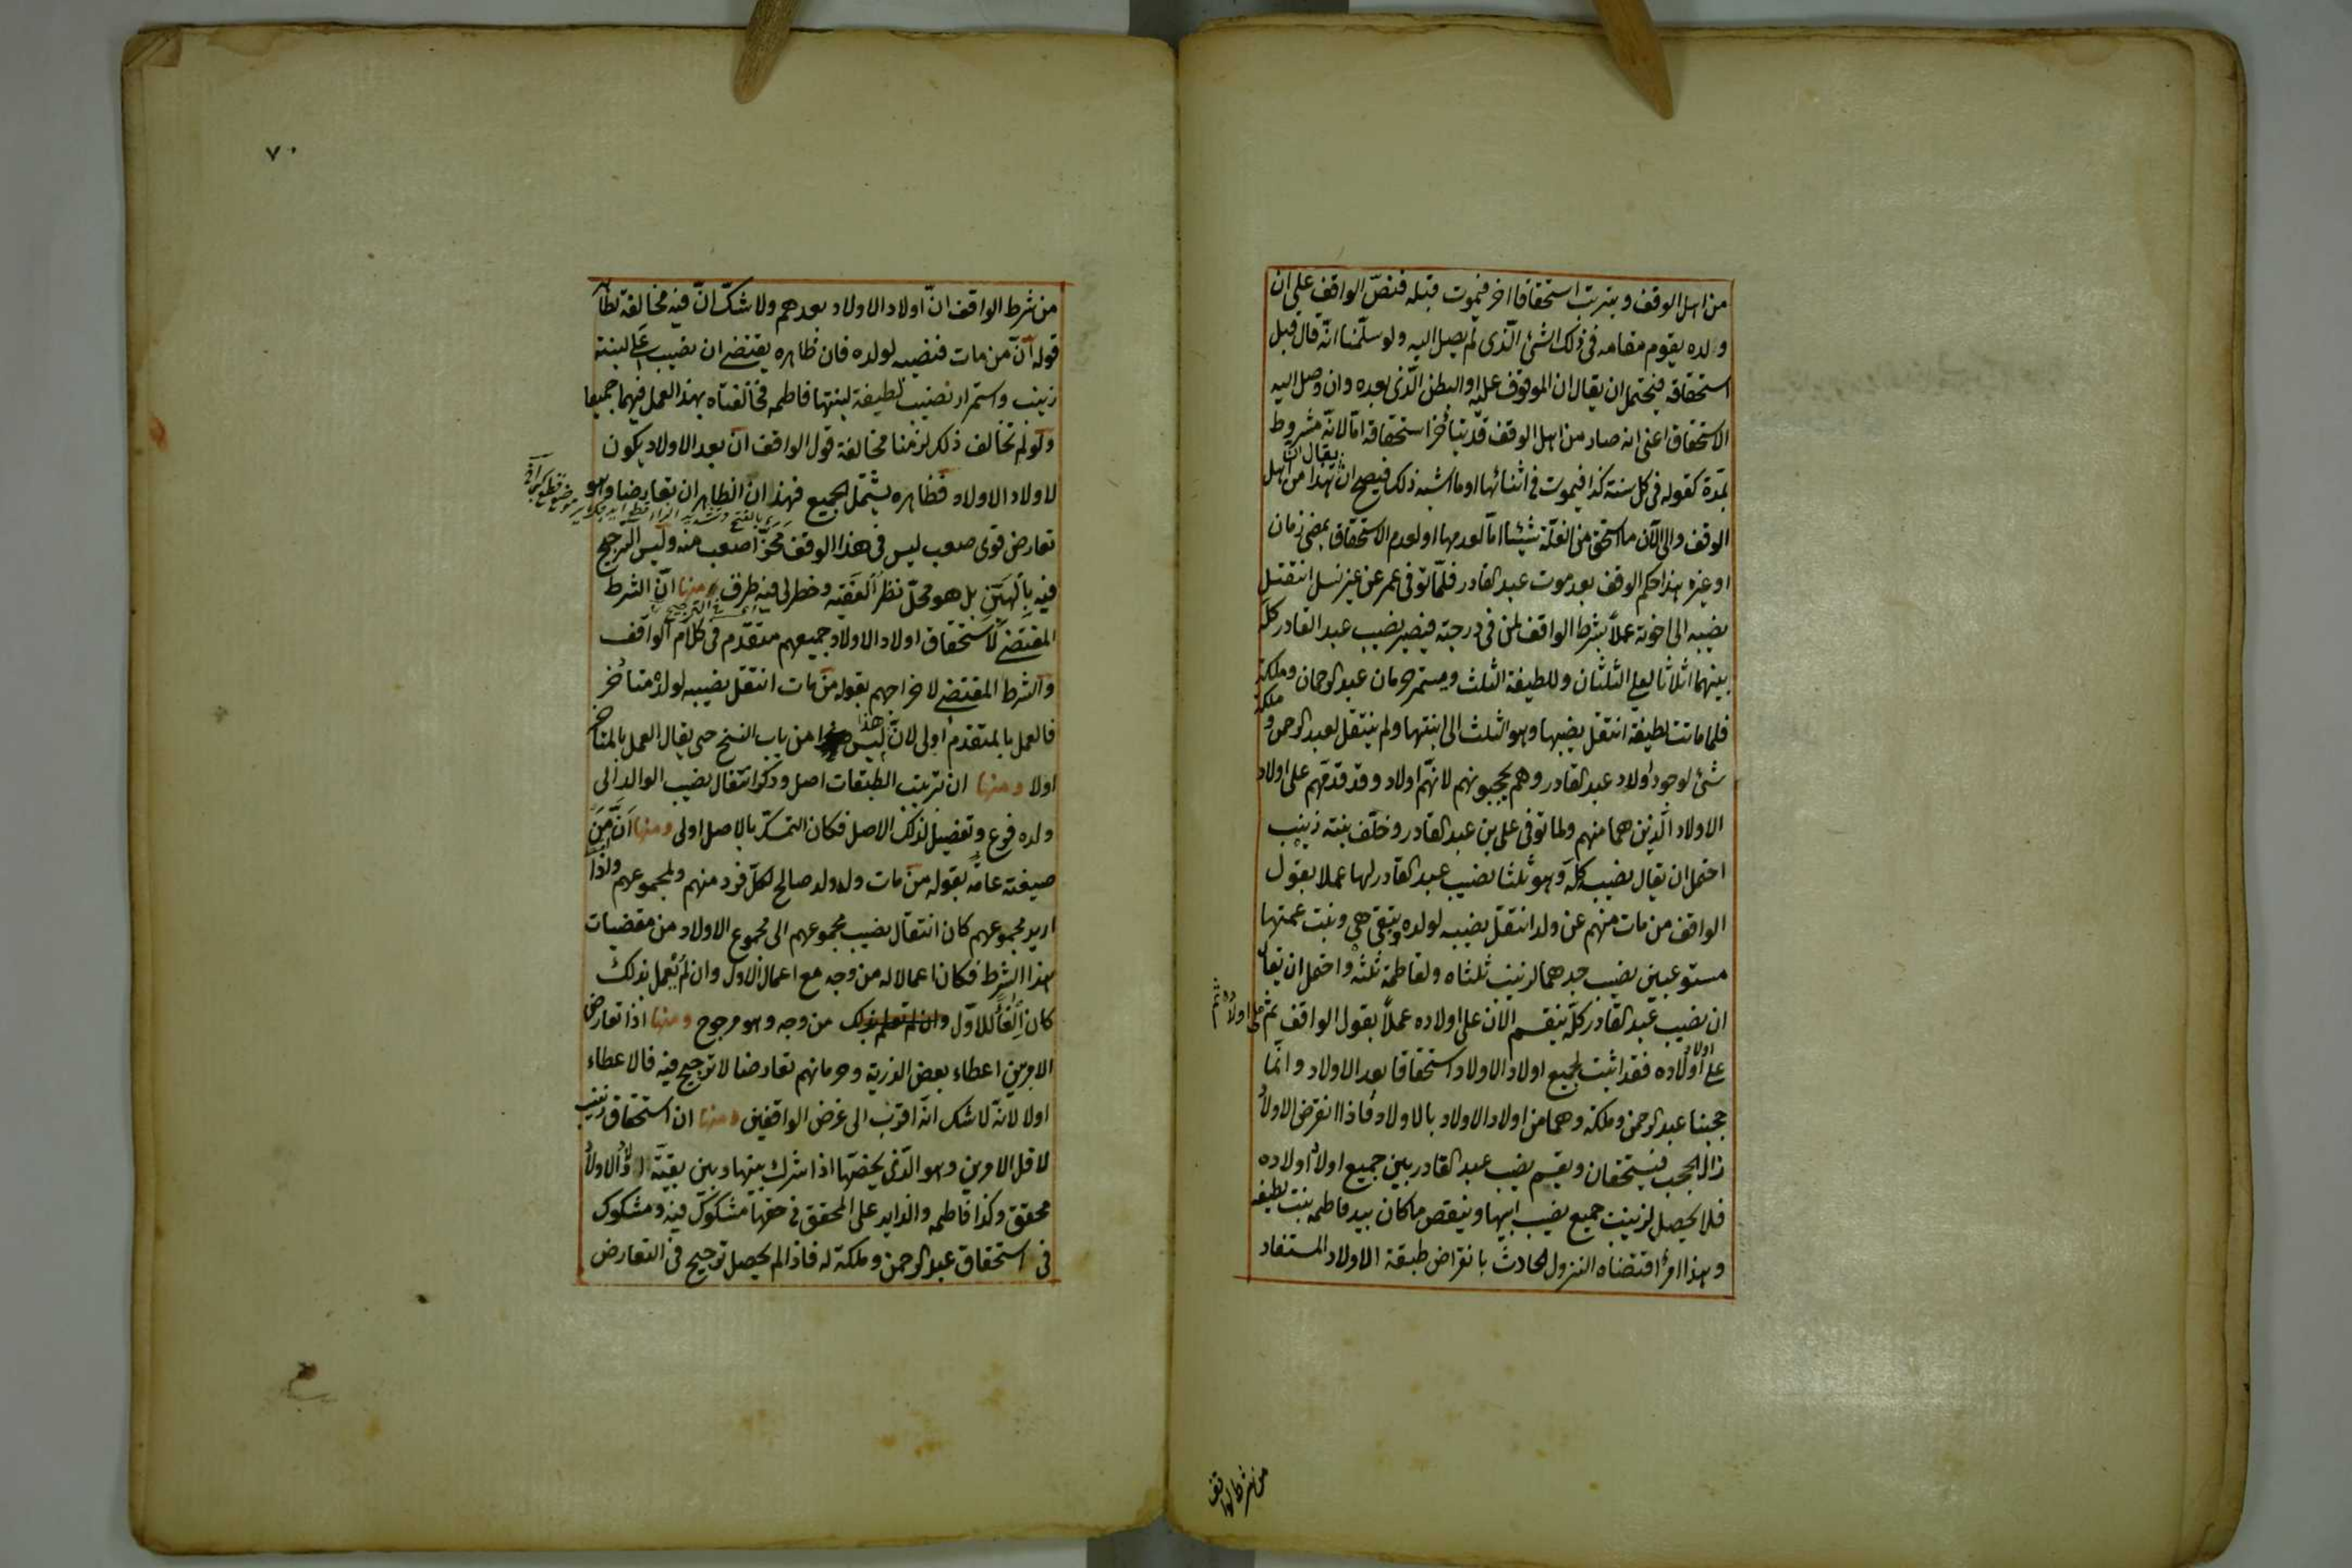 من اهل الوقف ويترتب استحقاقا اخر فيموت قبله فنصّ الواقف على ان
ولده يقوم مقامه فى ذلك الشئ الّذى لم يصل اليه ولو سلّمنا انّه قال قبل
استحقاقه فيحتمل ان يقال ان الموقوف عليه او البطن الّذى بعده وان وصل اليه
الاستحقاق اعنى انه صار من اهل الوقف قد يتأخر استحقاقه امّا لانّه مشروط
بمدة كقوله فى كل سنة كذا فيموت فى اثنائها او ما اشبه ذلك فيصح ان يقال ان هذا من اهل
الوقف والى الآن ما استحق من الغلّة شيئا امّا لعدمها او لعدم الاستحقاق بمضى زمان
او غيره هذا حكم الوقف بعد موت عبد القادر فلمّا توفى عمر عن غير نسل انتقل
نصيبه الى اخوته عملاً بشرط الواقف لمن فى درجته فيصير نصيب عبد القادر كله
بينهما اثلاثا لعلى الثلثان وللطيفة الثلث ويستمر حرمان عبد الرحمان وملكة
فلما ماتت لطيفة انتقل نصيبها وهو الثلث الى ابنتها ولم ينتقل لعبد الرحمن وملكة
شئ لوجود اولاد عبد القادر وهم يحجبونهم لانّهم اولاد وقد قدّمهم على اولاد
الاولاد الّذين هما منهم ولما توفى على بن عبد القادر وخلّف بنته زينب
احتمل ان يقال نصيب كله وهو ثلثا نصيب عبد القادر لها عملا بقول
الواقف من مات منهم عن ولد انتقل نصيبه لولده وتبقى هى وبنت عمتها
مستوعبين نصيب جدهما لزينب ثلثاه ولفاطمة ثلثه واحتمل ان يقال
ان نصيب عبد القادر كلّه ينقسم الآن على اولاده عملاً بقول الواقف ثم على اولاده ثم
على اولاد اولاده فقد اثبت لجميع اولاد الاولاد استحقاقا بعد الاولاد وانّما
حجبنا عبد الرحمن وملكة وهما من اولاد الاولاد بالاولاد فاذا انقرض الاولاد
زال الحجب فيستحقان ويقسم نصيب عبد القادر بين جميع اولاد اولاده
فلا يحصل لزينب جميع نصيب ابيها وينقص ما كان بيد فاطمه بنت لطيفه
وهذا امر اقتضاه النزول الحادث بانقراض طبقة الاولاد المستفاد
من شرط الواقف
٧٠
من شرط الواقف انّ اولاد الاولاد بعدهم ولا شكّ انّ فيه مخالفة لظاهر
قوله انّ من مات فنصيبه لولده فان ظاهره يقتضى ان نصيب على لبنته
زينب واستمرار نصيب لطيفة لبنتها فاطمه فخالفناه بهذا العمل فيهما جميعا
ولو لم نخالف ذلك لزمنا مخالفة قول الواقف ان بعد الاولاد يكون
لاولاد الاولاد فظاهره يشتمل الجميع فهذان الظاهران تعارضا وهو
تعارض قوى صعب ليس فى هذا الوقف محزّ اصعب منه وليس الترجيح
فيه بالهيّن بل هو محلّ نظر الفقيه وخطر لى فيه طرق ومنها انّ الشرط
المقتضى لاستحقاق اولاد الاولاد جميعهم متقدّم فى كلام الواقف
والشرط المقتضى لاخراجهم بقوله من مات انتقل نصيبه لولده متأخر
فالعمل بالمتقدم اولى لانّ هذا ليس من باب النسخ حتى يقال العمل بالمتأخر
اولا ومنها ان ترتيب الطبقات اصل وذكر انتقال نصيب الوالد الى
ولده فرع وتفصيل لذلك الاصل فكان التمسّك بالاصل اولى ومنها انّ من
صيغته عامّة بقوله من مات وله ولد صالح لكلّ فرد منهم ولمجموعهم واذا
اريد مجموعهم كان انتقال نصيب مجموعهم الى مجموع الاولاد من مقضيات
هذا الشرط فكان اعمالا له من وجه مع اعمال الاول وان لم يعمل بذلك
كان الغاءً للاوّل وان لم تعلم بذلك من وجه وهو مرجوح ومنها اذا تعارض
الامرين اعطاء بعض الذرية وحرمانهم تعارضا لا ترجيح فيه فالاعطاء
اولا لانّه لا شك انّه اقرب الى غرض الواقفين ومنها ان استحقاق زينب
لاقل الامرين وهو الّذى يخصّها اذا شرك بينها وبين بقيّة اولاد الاولاد
محقق وكذا فاطمه والزايد على المحقق فى حقها مشكوك فيه ومشكوك
فى استحقاق عبد الرحمن وملكة له فاذا لم يحصل ترجيح فى التعارض